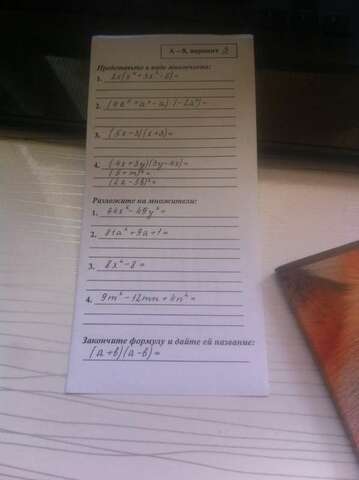 А – 8, вариант 3
Представьте в виде многочлена:
1. 2x(x⁴+3x²-8)=
2. (4a³+a²-a)·(-2a²)=
3. (5x-3)(x+3)=
4. (4x+3y)(3y-4x)=
(5+m)²=
(2a-3b)²=
Разложите на множители:
1. 64x²-49y²=
2. 81a²+9a+1=
3. 8x²-8=
4. 9m²-12mn+4n²=
Закончите формулу и дайте ей название:
(a+b)(a-b)=